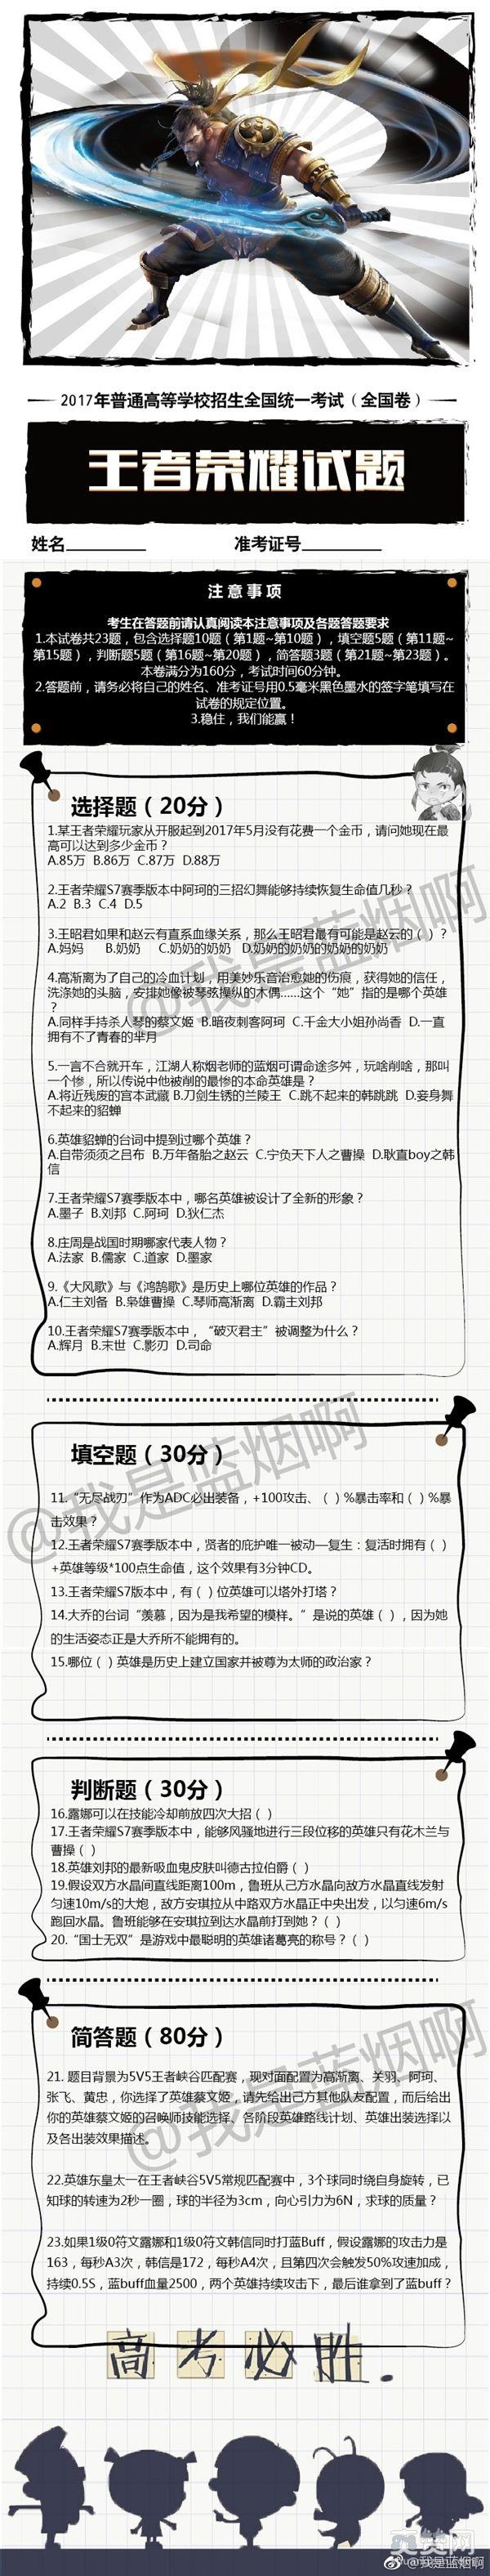 2017年普通高等学校招生全国统一考试（全国卷）
王者荣耀试题
姓名__________ 准考证号__________
注意事项
考生在答题前请认真阅读本注意事项及各题答题要求
1.本试卷共23题，包含选择题10题（第1题~第10题），填空题5题（第11题~
第15题），判断题5题（第16题~第20题），简答题3题（第21题~第23题）。
本卷满分为160分，考试时间60分钟。
2.答题前，请务必将自己的姓名、准考证号用0.5毫米黑色墨水的签字笔填写在
试卷的规定位置。
3.稳住，我们能赢！
选择题（20分）
1.某王者荣耀玩家从开服起到2017年5月没有花费一个金币，请问她现在最
高可以达到多少金币？
A.85万 B.86万 C.87万 D.88万
2.王者荣耀S7赛季版本中阿珂的三招幻舞能够持续恢复生命值几秒？
A.2 B.3 C.4 D.5
3.王昭君如果和赵云有直系血缘关系，那么王昭君最有可能是赵云的（ ）？
A.妈妈 B.奶奶 C.奶奶的奶奶 D.奶奶的奶奶的奶奶的奶奶
4.高渐离为了自己的冷血计划，用美妙乐音治愈她的伤痕，获得她的信任，
洗涤她的头脑，安排她像被琴弦操纵的木偶……这个“她”指的是哪个英雄
？
A.同样手持杀人琴的蔡文姬 B.暗夜刺客阿珂 C.千金大小姐孙尚香 D.一直
拥有不了青春的芈月
5.一言不合就开车，江湖人称烟老师的蓝烟可谓命途多舛，玩啥削啥，那叫
一个惨，所以传说中他被削的最惨的本命英雄是？
A.将近残废的宫本武藏 B.刀剑生锈的兰陵王 C.跳不起来的韩跳跳 D.妾身舞
不起来的貂蝉
6.英雄貂蝉的台词中提到过哪个英雄？
A.自带须须之吕布 B.万年备胎之赵云 C.宁负天下人之曹操 D.耿直boy之韩
信
7.王者荣耀S7赛季版本中，哪名英雄被设计了全新的形象？
A.墨子 B.刘邦 C.阿珂 D.狄仁杰
8.庄周是战国时期哪家代表人物？
A.法家 B.儒家 C.道家 D.墨家
9.《大风歌》与《鸿鹄歌》是历史上哪位英雄的作品？
A.仁主刘备 B.枭雄曹操 C.琴师高渐离 D.霸主刘邦
10.王者荣耀S7赛季版本中，“破灭君主”被调整为什么？
A.辉月 B.末世 C.影刃 D.司命
填空题（30分）
11.“无尽战刃”作为ADC必出装备，+100攻击、（ ）%暴击率和（ ）%暴
击效果？
12.王者荣耀S7赛季版本中，贤者的庇护唯一被动—复生：复活时拥有（ ）
+英雄等级*100点生命值，这个效果有3分钟CD。
13.王者荣耀S7版本中，有（ ）位英雄可以塔外打塔？
14.大乔的台词“羡慕，因为是我希望的模样。”是说的英雄（ ），因为她
的生活姿态正是大乔所不能拥有的。
15.哪位（ ）英雄是历史上建立国家并被尊为太师的政治家？
判断题（30分）
16.露娜可以在技能冷却前放四次大招（ ）
17.王者荣耀S7赛季版本中，能够风骚地进行三段位移的英雄只有花木兰与
曹操（ ）
18.英雄刘邦的最新吸血鬼皮肤叫德古拉伯爵（ ）
19.假设双方水晶间直线距离100m，鲁班从己方水晶向敌方水晶直线发射
匀速10m/s的大炮，敌方安琪拉从中路双方水晶正中央出发，以匀速6m/s
跑回水晶。鲁班能够在安琪拉到达水晶前打到她？（ ）
20.“国士无双”是游戏中最聪明的英雄诸葛亮的称号？（ ）
简答题（80分）
21. 题目背景为5V5王者峡谷匹配赛，现对面配置为高渐离、关羽、阿珂、
张飞、黄忠，你选择了英雄蔡文姬，请先给出己方其他队友配置，而后给出
你的英雄蔡文姬的召唤师技能选择、各阶段英雄路线计划、英雄出装选择以
及各出装效果描述。
22.英雄东皇太一在王者峡谷5V5常规匹配赛中，3个球同时绕自身旋转，已
知球的转速为2秒一圈，球的半径为3cm，向心引力为6N，求球的质量？
23.如果1级0符文露娜和1级0符文韩信同时打蓝Buff，假设露娜的攻击力是
163，每秒A3次，韩信是172，每秒A4次，且第四次会触发50%攻速加成，
持续0.5S，蓝buff血量2500，两个英雄持续攻击下，最后谁拿到了蓝buff？
高考必胜.
@我是蓝烟啊
@我是蓝烟啊
@我是蓝烟啊
@我是蓝烟啊